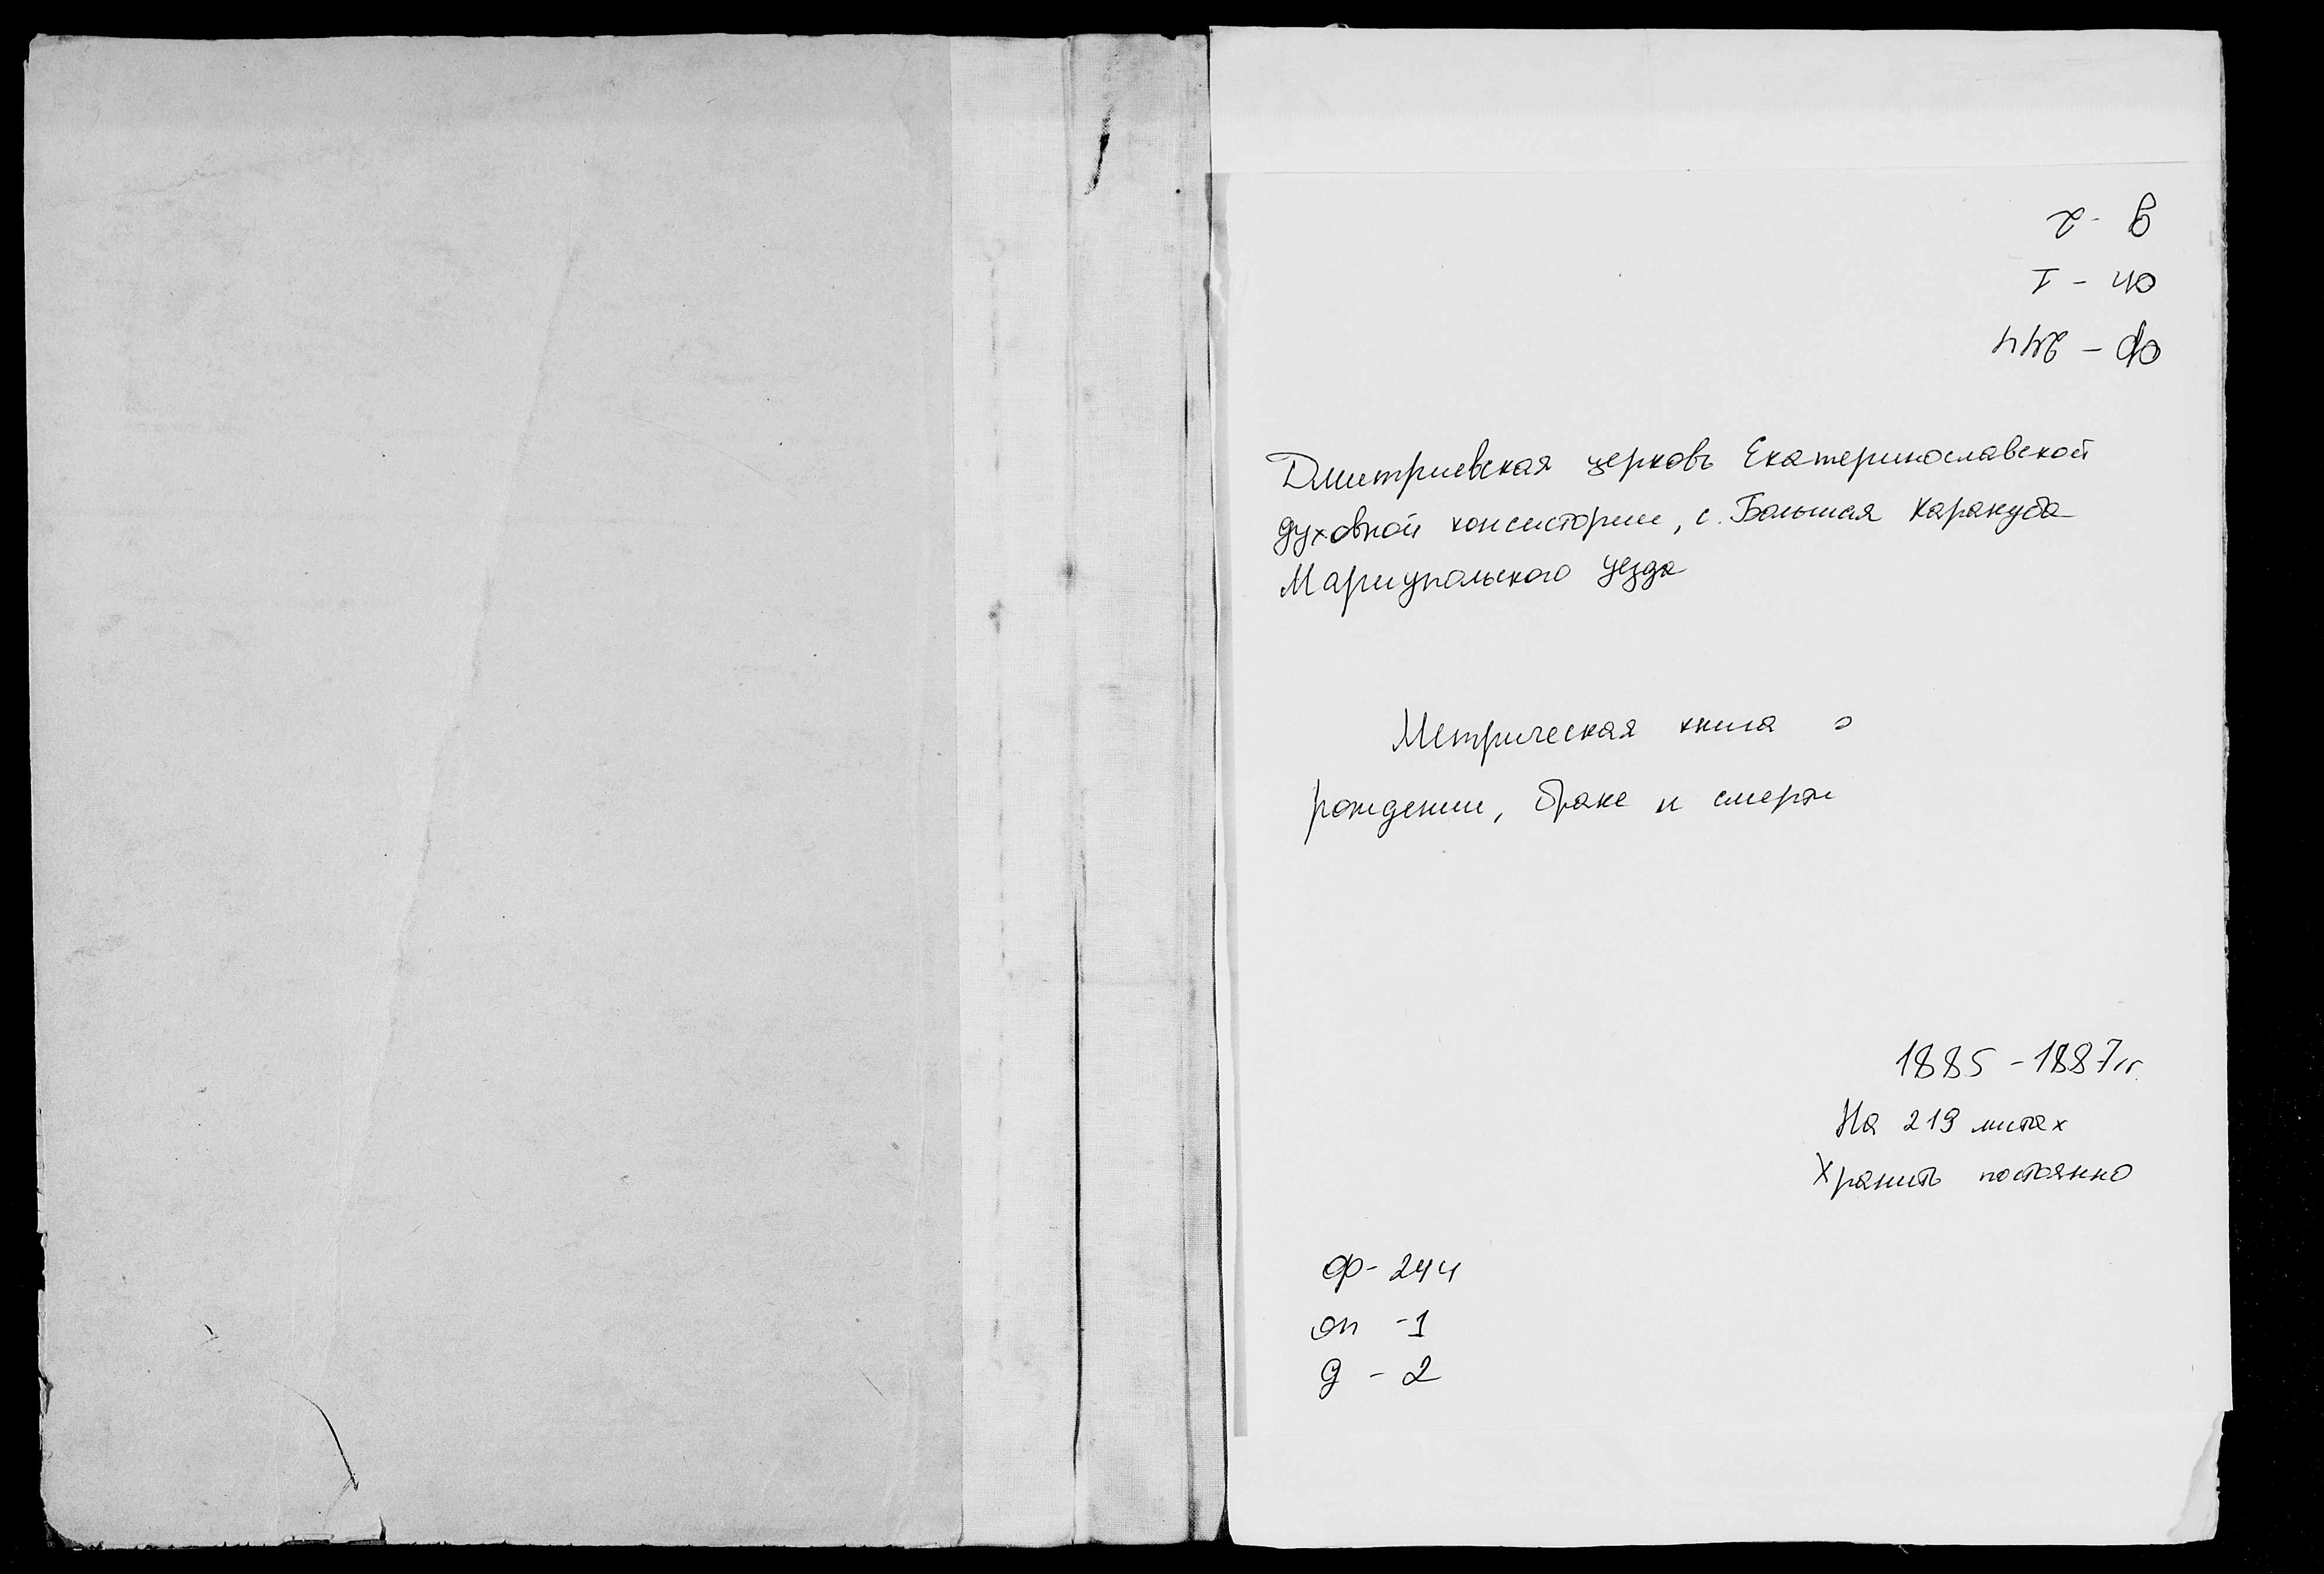 д - 2
оп - 1
ф - 244
Дмитриевская церковь Екатеринославской
духовной консистории, с. Большая Каракуба
Мариупольского уезда
Метрическая книга о
рождении, браке и смерти
1885 - 1887 гг.
На 219 листах
Хранить постоянно
ф - 244
оп - 1
д - 2